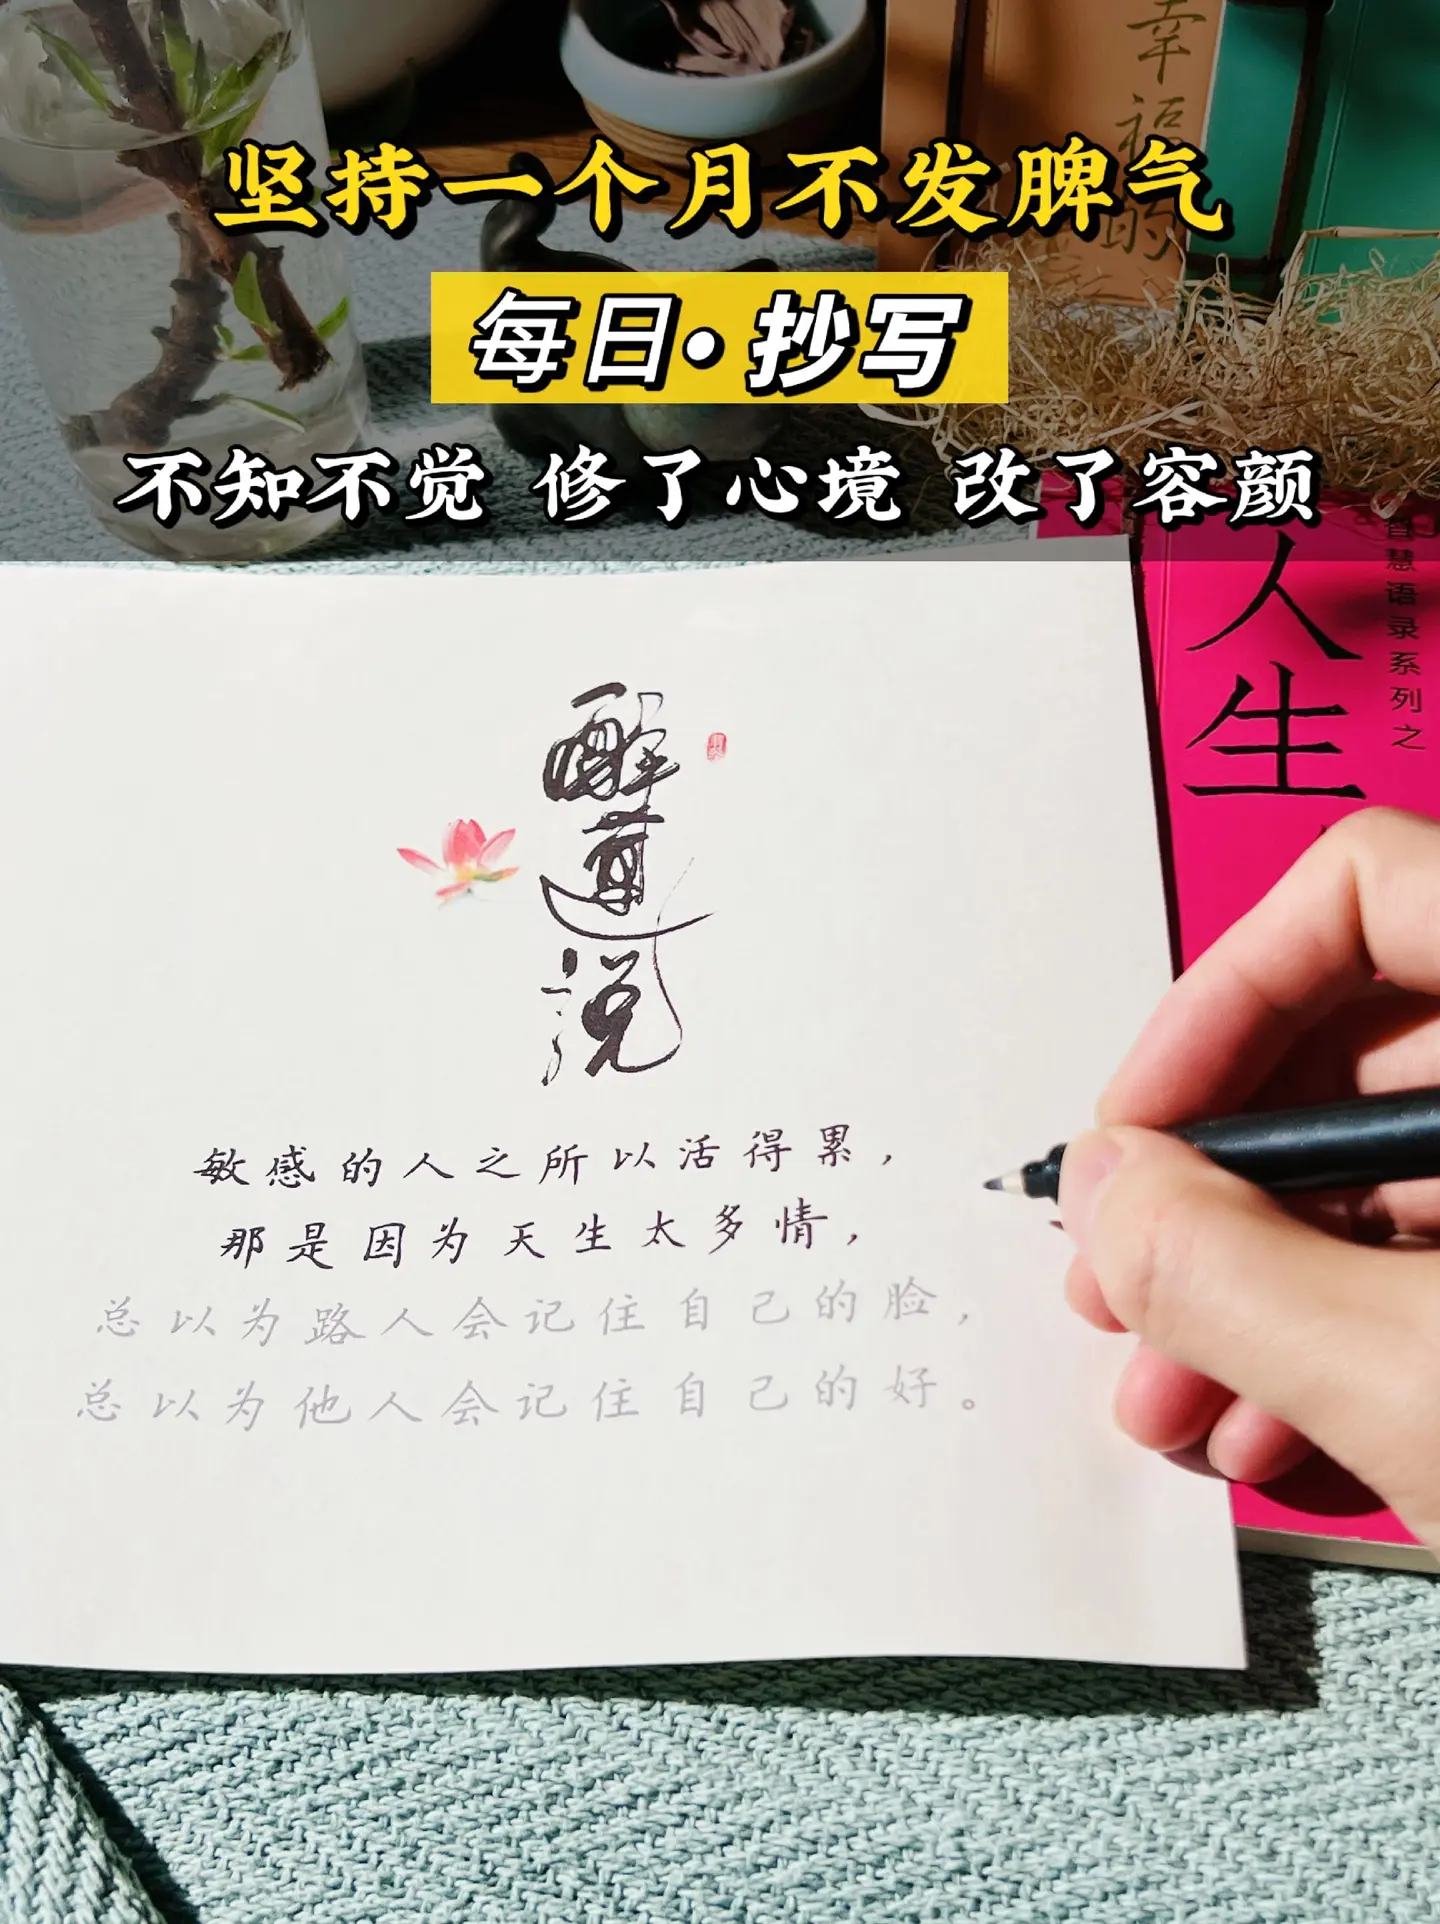 坚持一个月不发脾气
每日·抄写
不知不觉 修了心境 改了容颜
幸福的
人生
智慧语录系列之
醉道说
敏感的人之所以活得累，
那是因为天生太多情，
总以为路人会记住自己的脸，
总以为他人会记住自己的好。